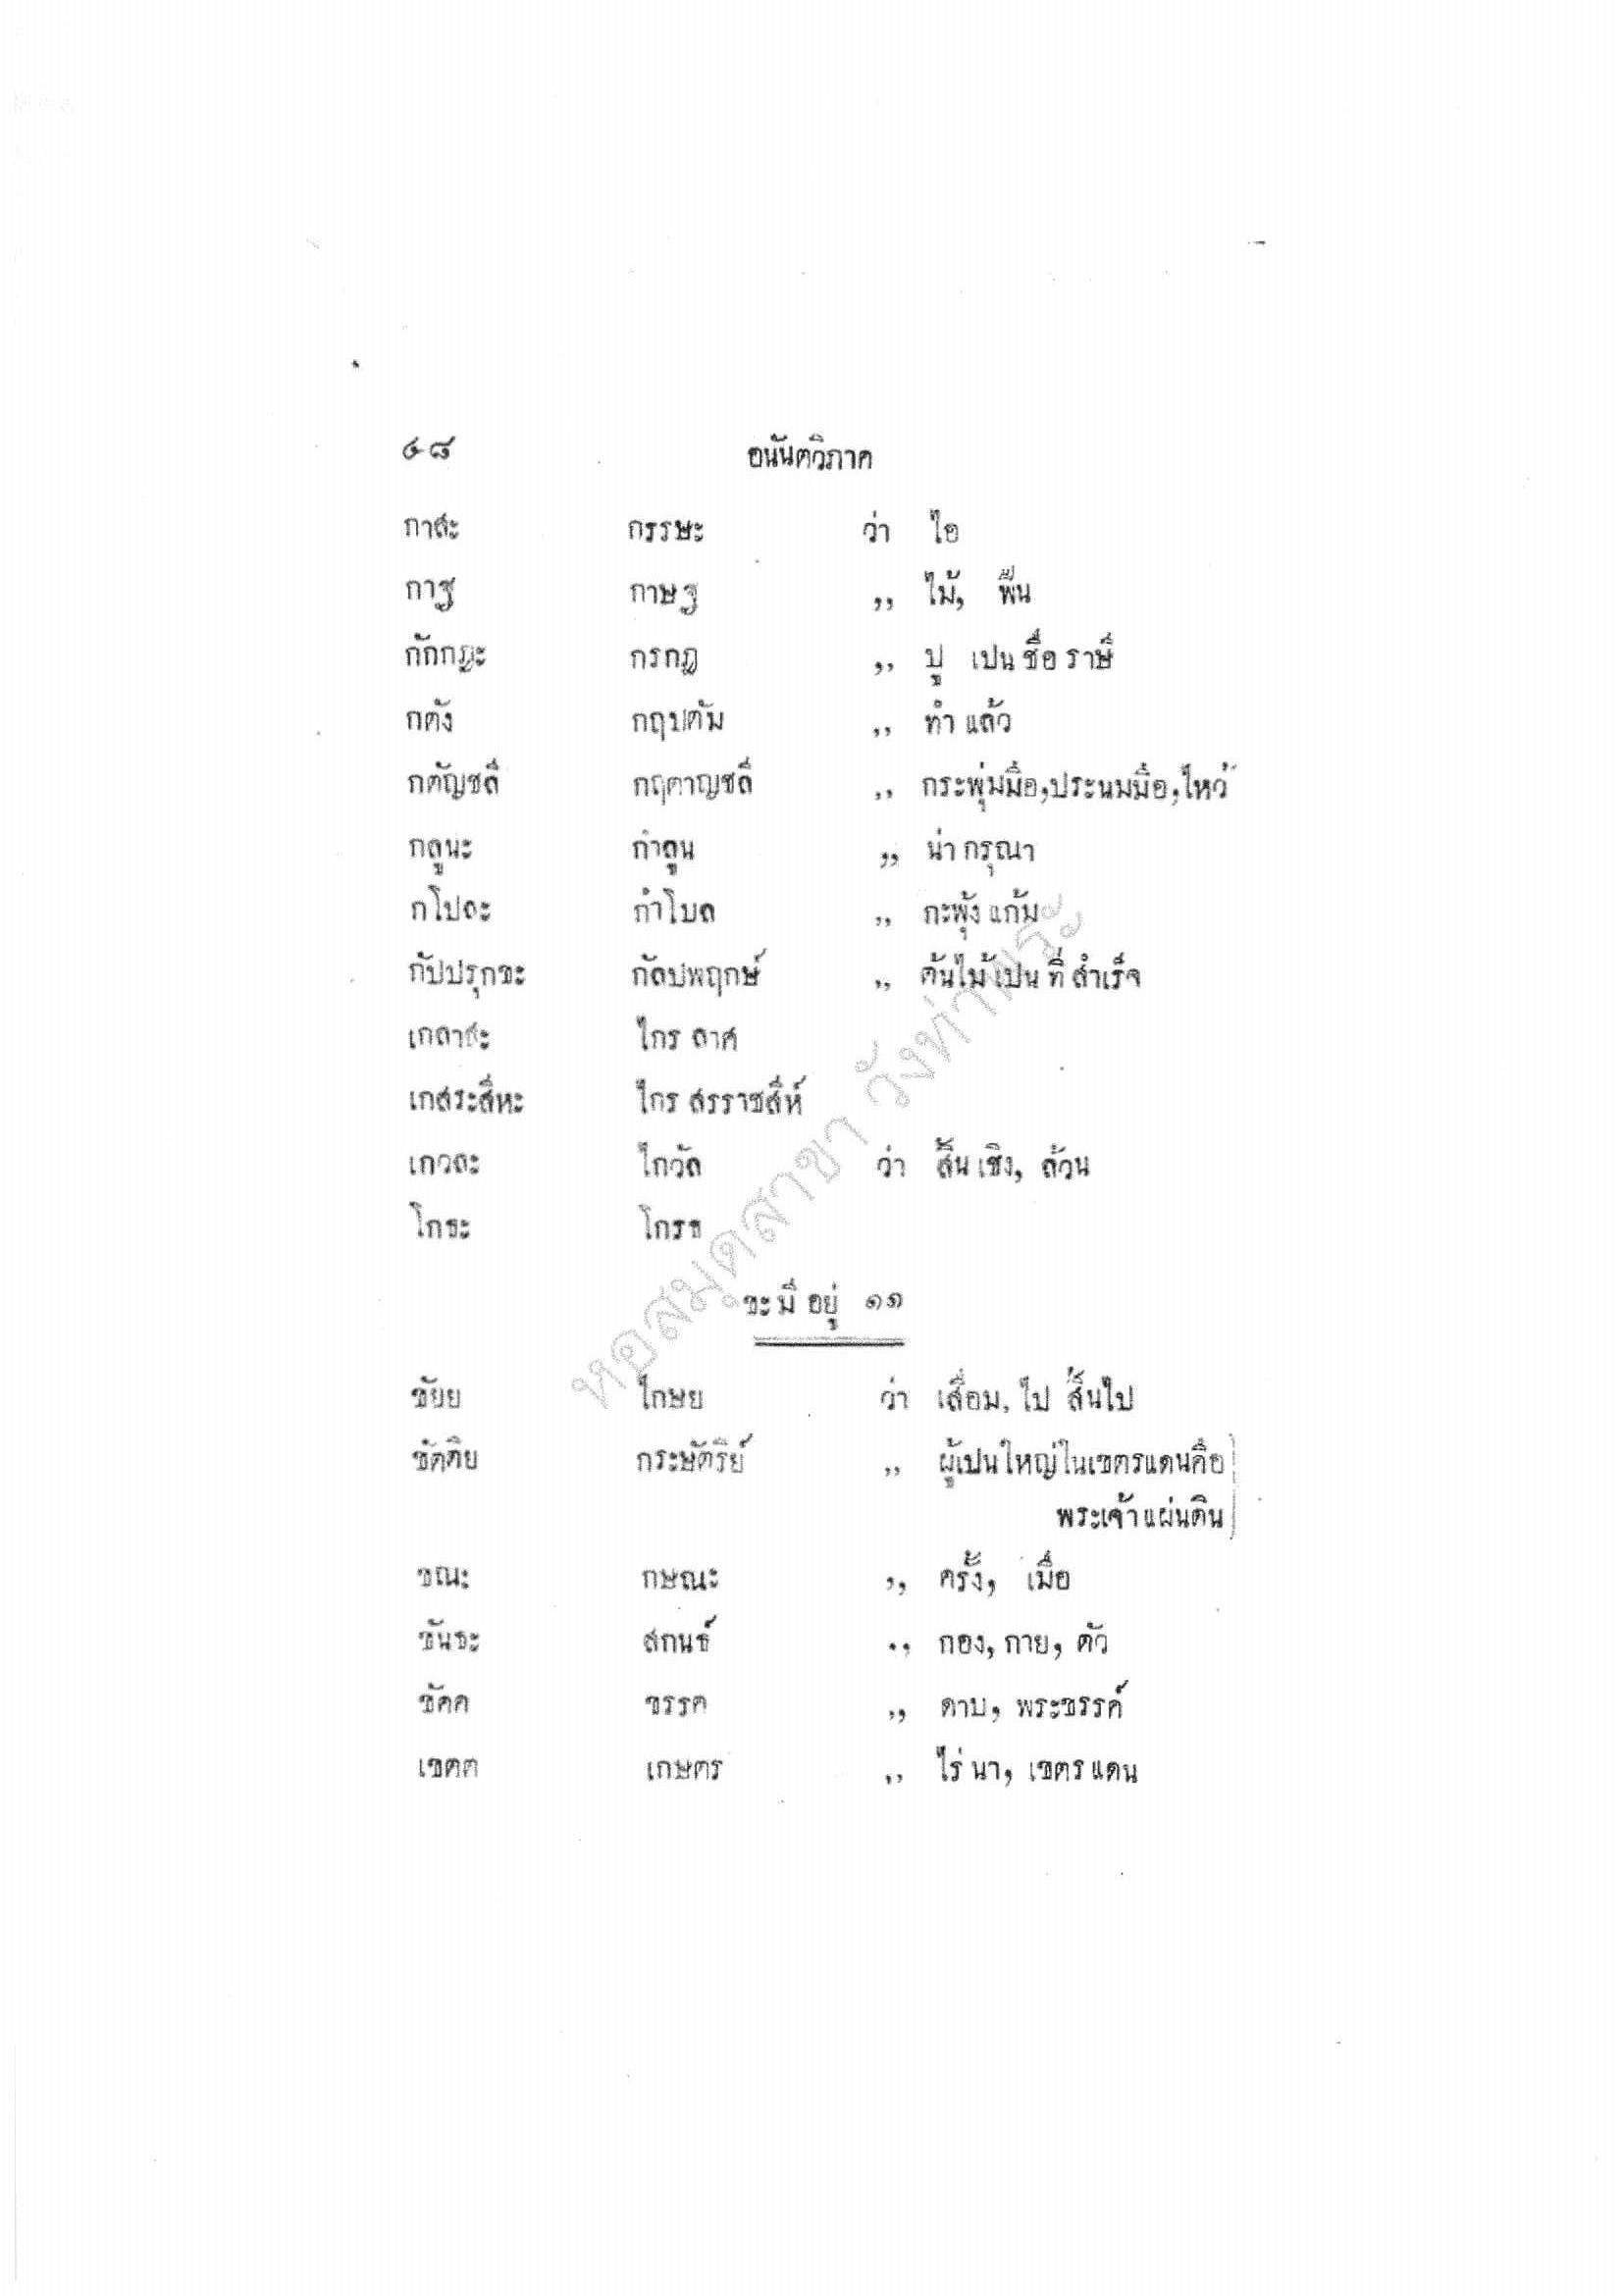 ๔๘ อนันตวิภาค
กาสะ กรรษะ ว่า ไอ
กาฐ กาษฐ ,, ไม้, ฟืน
กักกฏะ กรกฏ ,, ปู เปนชื่อราษี
กตัง กฤปตัม ,, ทำแล้ว
กตัญชลี กฤตาญชลี ,, กระพุ่มมือ,ประนมมือ,ไหว้
กลูนะ กำลูน ,, น่ากรุณา
กโปละ กำโบล ,, กะพุ้งแก้ม
กัปปรุกขะ กัลปพฤกษ์ ,, ต้นไม้เปนที่สำเร็จ
เกลาสะ ไกรลาศ
เกสระสีหะ ไกรสรราชสีห์
เกวละ ไกวัล ว่า สิ้นเชิง, ล้วน
โกธะ โกรธ
ขะมีอยู่ ๑๑
ขัยย ไกษย ว่า เสื่อม, ไป สิ้นไป
ขัตติย กระษัตรีย์ ,, ผู้เปนใหญ่ในเขตรแดนคือ
พระเจ้าแผ่นดิน
ขณะ กษณะ ,, ครั้ง, เมื่อ
ขันธะ สกนธ์ ,, กอง, กาย, ตัว
ขัคค ขรรค ,, ดาบ, พระขรรค์
เขตต เกษตร ,, ไร่นา, เขตรแดน
หอสมุดสาขา วังท่าพระ